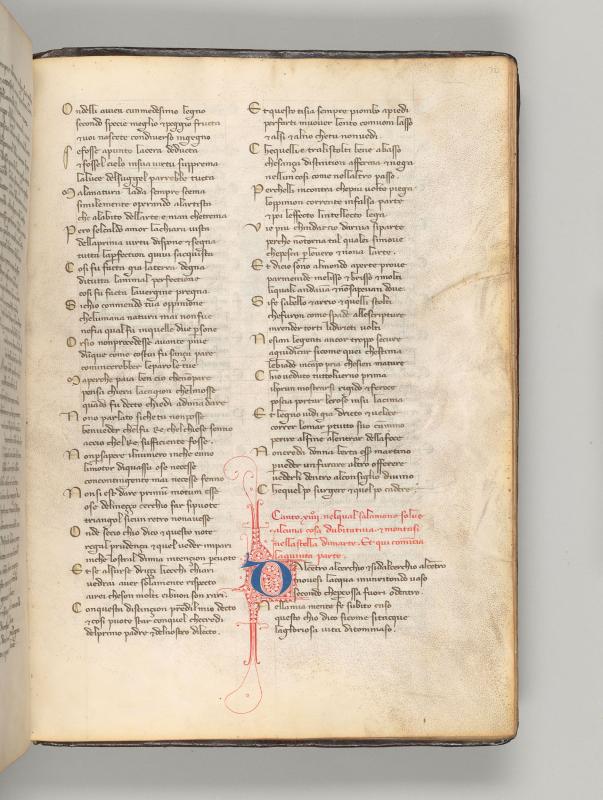 Ondelli avien cunmedesimo legno
secondo specie meglio & peggio fructa
& voi nascete condiverso ingegno
Sefosse apunto lacera deducta
& fossel cielo insua vertu supprema
laluce delsuggel parrebbe tucta
Malanatura lada sempre scema
similemente operando alartista
che alabito dellarte & man chetrema
Pero selcaldo amor lachiara vista
dellaprima virtu dispone & segna
tutta laperfection quivi sacquista
Cosi fu facta gia laterra degna
ditutta lanimal perfectione
cosi fu facta lavergine pregna
Sichio commendo tua oppinione
chelumana natura mai non fue
ne fia qual fu inquelle due persone
Orsio nonprocedesse avante piue
dunque come costui fu sança pare
comincerebber leparole tue
Maperche paia ben cio chenonpare
pensa chiera lacagion chelmosse
quando fu decto chiedi adimandare
Nono parlato sichetu nonposse
benveder chelfu Re, chel chiese senno
accio chel Re sufficiente fosse.
Nonpsapere ilnumero inche enno
limotor diquassu o se necesse
concontingente mai necesse fenno
Nonsi est dare primum motum esse
o se delmeggo cerchio far sipuote
triangol sicun recto nonavesse
Onde secio chio dico & questo note
regal prudença & quel veder impari
inche lostral dima intention percuote
Et se alsurse driggi liocchi chiari
vedrai aver solamente respecto
airei cheson molti eibuon son rari.
Conquesta distinçion prendil mio decto
& cosi puote star conquel checredi
delprimo padre & delnostro dilecto.
Et questo tisia sempre piombo apiedi
perfarti muover lento comuom lasso
& alsi & alno chetu nonvedi.
Chequelli e tralistolti bene abasso
chesança distintion afferma & niega
nellun cosi come nellaltro passo.
Perchelli incontra chepiu volte piega
loppinion corrente infalsa parte
& poi leffecto lintellecto lega
Vie piu chindarno dariva siparte
perche nontorna tal qualei simove
chepesca plovero & nona larte.
Et dicio sono almondo aperte prove
parmenide melisso & brisso & molti
liquali andava & nonsapevan dove.
Si fe sabello & arrio & quelli stolti
chefuron come spade allescripture
inrender torti lidiricti volti
Nosian legenti ancor troppo secure
agiudicar sicome quei chestima
lebiade incampo pria chesien mature
Chio veduto tuttolverno prima
ilprun mostrarsi rigido & feroce
poscia portar larosa insu lacima
Et legno vidi gia dricto & veloce
correr lomar ptutto suo cammino
perire alfine alentrar dellafoce
Noncreda donna berta & ser martino
pveder unfurare altro offerere
vederli dentro alconsiglio divino
Chequel po surger & quel po cadere.
Canto .xiiij. nelqual salamone solve
alcuna cosa dubitativa & montasi
nella stella dimarte. Et qui comicia
laquinta parte.
Dalcetro alcerchio & sidalcerchio alcetro
movesi lacqua inunritondo vaso
secondo cheperossa fuori odentro.
Nellamia mente fe subito caso
questo chio dico sicome sitacque
lagloriosa vita ditommaso.